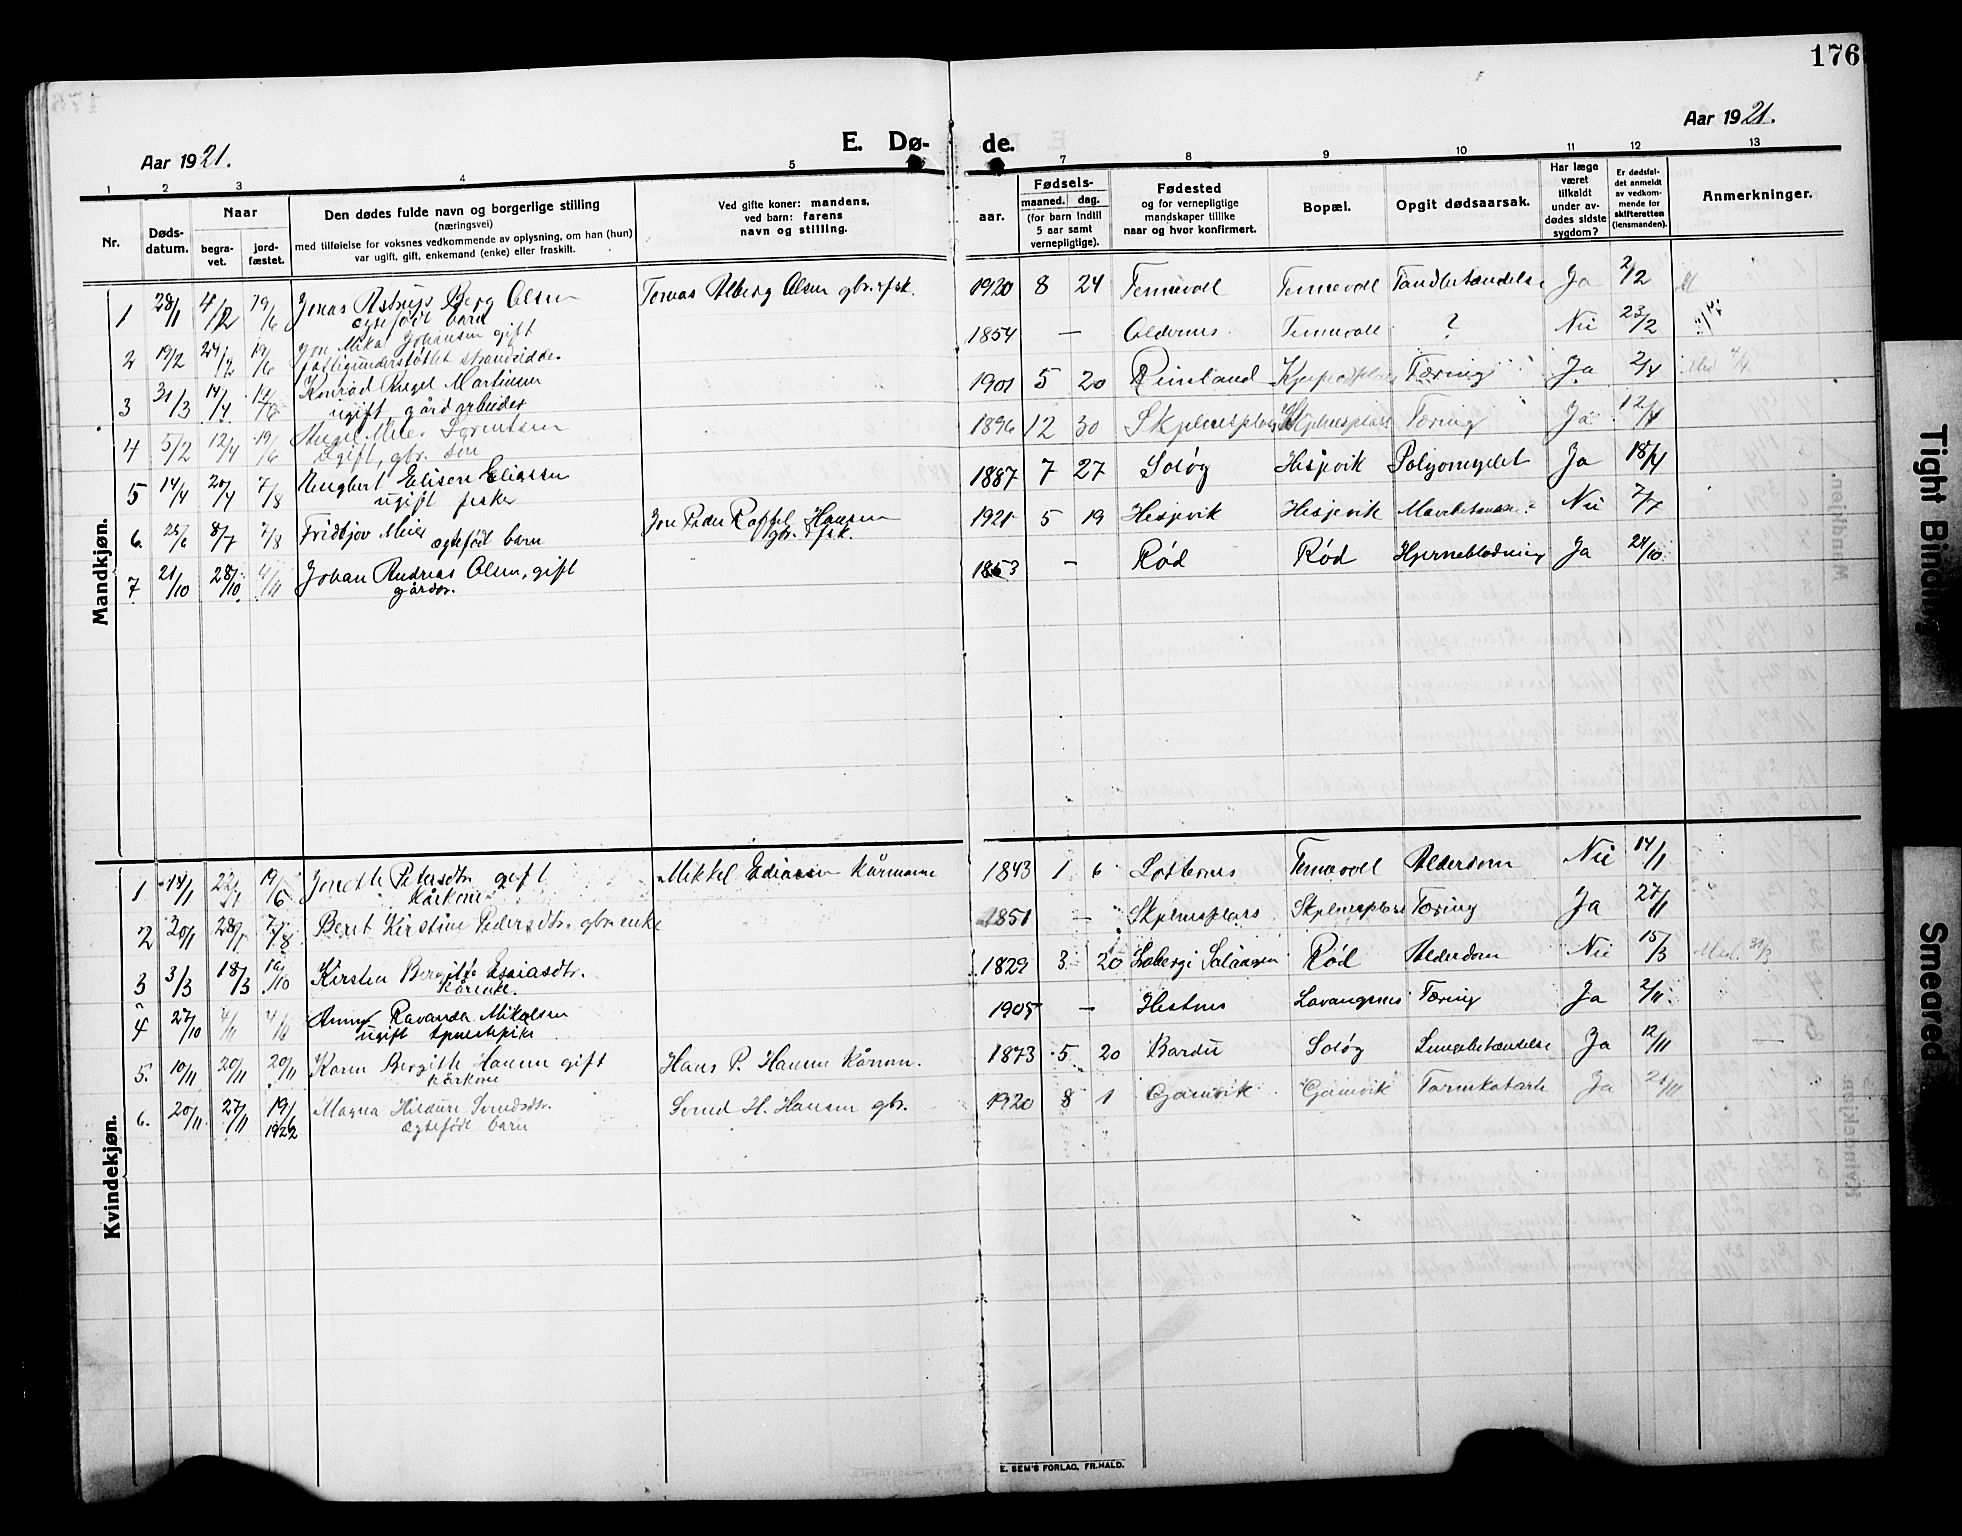 176
Aar 1921.
E. Dø- de.
Aar 1921.
1 2 3 4 5 7 8 9 10 11 12 13
Nr.
Døds-
datum.
Naar
begra-
vet.
jord-
fæstet.
Den dødes fulde navn og borgerlige stilling
(næringsvei)
med tilføielse for voksnes vedkommende av oplysning, om han (hun)
var ugift, gift, enkemand (enke) eller fraskilt.
Ved gifte koner: mandens,
ved barn: farens
navn og stilling.
Fødsels-
aar.
maaned. dag.
(for barn indtil
5 aar samt
vernepligtige).
Fødested
og for vernepligtige
mandskaper tillike
naar og hvor konfirmert.
Bopæl.
Opgit dødsaarsak.
Har læge
været
tilkaldt
under av-
dødes sidste
sygdom?
Er dødsfal-
det anmeldt
av vedkom-
mende for
skifteretten
(lensmanden).
Anmerkninger.
Mandkjøn.
1 28/1 4/2 19/6 Jonas Astrup Berg Olsen Tomas Alberg Olsen gbr. & fsk. 1920 8 24 Tennevoll Tennevoll Tandbetændelse Ja 2/2
ægtefødt barn
2 19/2 24/2 19/6 Jon Mikal Johansen gift 1854 — Oldernes Tennevoll ? Nei 23/2
fattigunderstøttet strandsidder
3 31/3 14/4 Konrad Angel Martinsen 1901 5 20 Tæring Ja 2/4
ugift, gårdarbeider
4 5/2 12/4 19/6 Sørentsen 1896 12 30 Tæring Ja 12/4
ugift, gbr. søn
5 14/4 20/4 7/8 Engbert Elisen Eliassen 1887 7 27 Soløy Hesjevik Ja 18/4
ugift fisker
6. 25/6 8/7 7/8 Fridtjov Meier Jon Peder Raffel Hansen 1921 5 19 Hesjevik Hesjevik Nei 7/7
ægtefødt barn gbr. & fsk.
7 21/10 28/10 4/11 Johan Andreas Olsen, gift 1853 — Rød Rød Hjerneblødning Ja 24/10
gårdbr.
Kvindekjøn.
1 14/1 22/1 19/6 Joneth Petersdtr. gift Mikkel Ediassen Kårmann 1843 1 6 Lotternes Tennevoll Alderdom Nei 14/1
Kårkone
2 20/1 28/1 7/8 Berit Kirstine Pedersdtr. gbr. enke 1851 — Skjelnesplass Skjelnesplass Tæring Ja 27/1
3 3/3 18/3 16/10 Kirsten Bergitte Esaiasdtr. 1829 3 20 Soberg i Salangen Rød Alderdom Nei 15/3 31/3
Kårenke.
4 27/10 4/11 Anny Ravanda Mikalsen 1905 — Hestnes Lavangsnes Tæring Ja 2/11
ugift tjenestepike
5. 10/11 20/11 20/11 Karen Bergith Hansen gift Hans P. Hansen Kårman. 1873 5 20 Bardu Soløy Lungebetændelse Ja 12/11
Kårkone
6. 20/11 27/11 19/6 Magna Hildure Svendsdtr. Svend H. Hansen gbr. 1920 8 1 Gjamvik Gjamvik Tarmkatarh Ja 21/11
1922 ægtefødt barn
E. SEM'S FORLAG, FR.HALD.
Tight Binding
Smeared